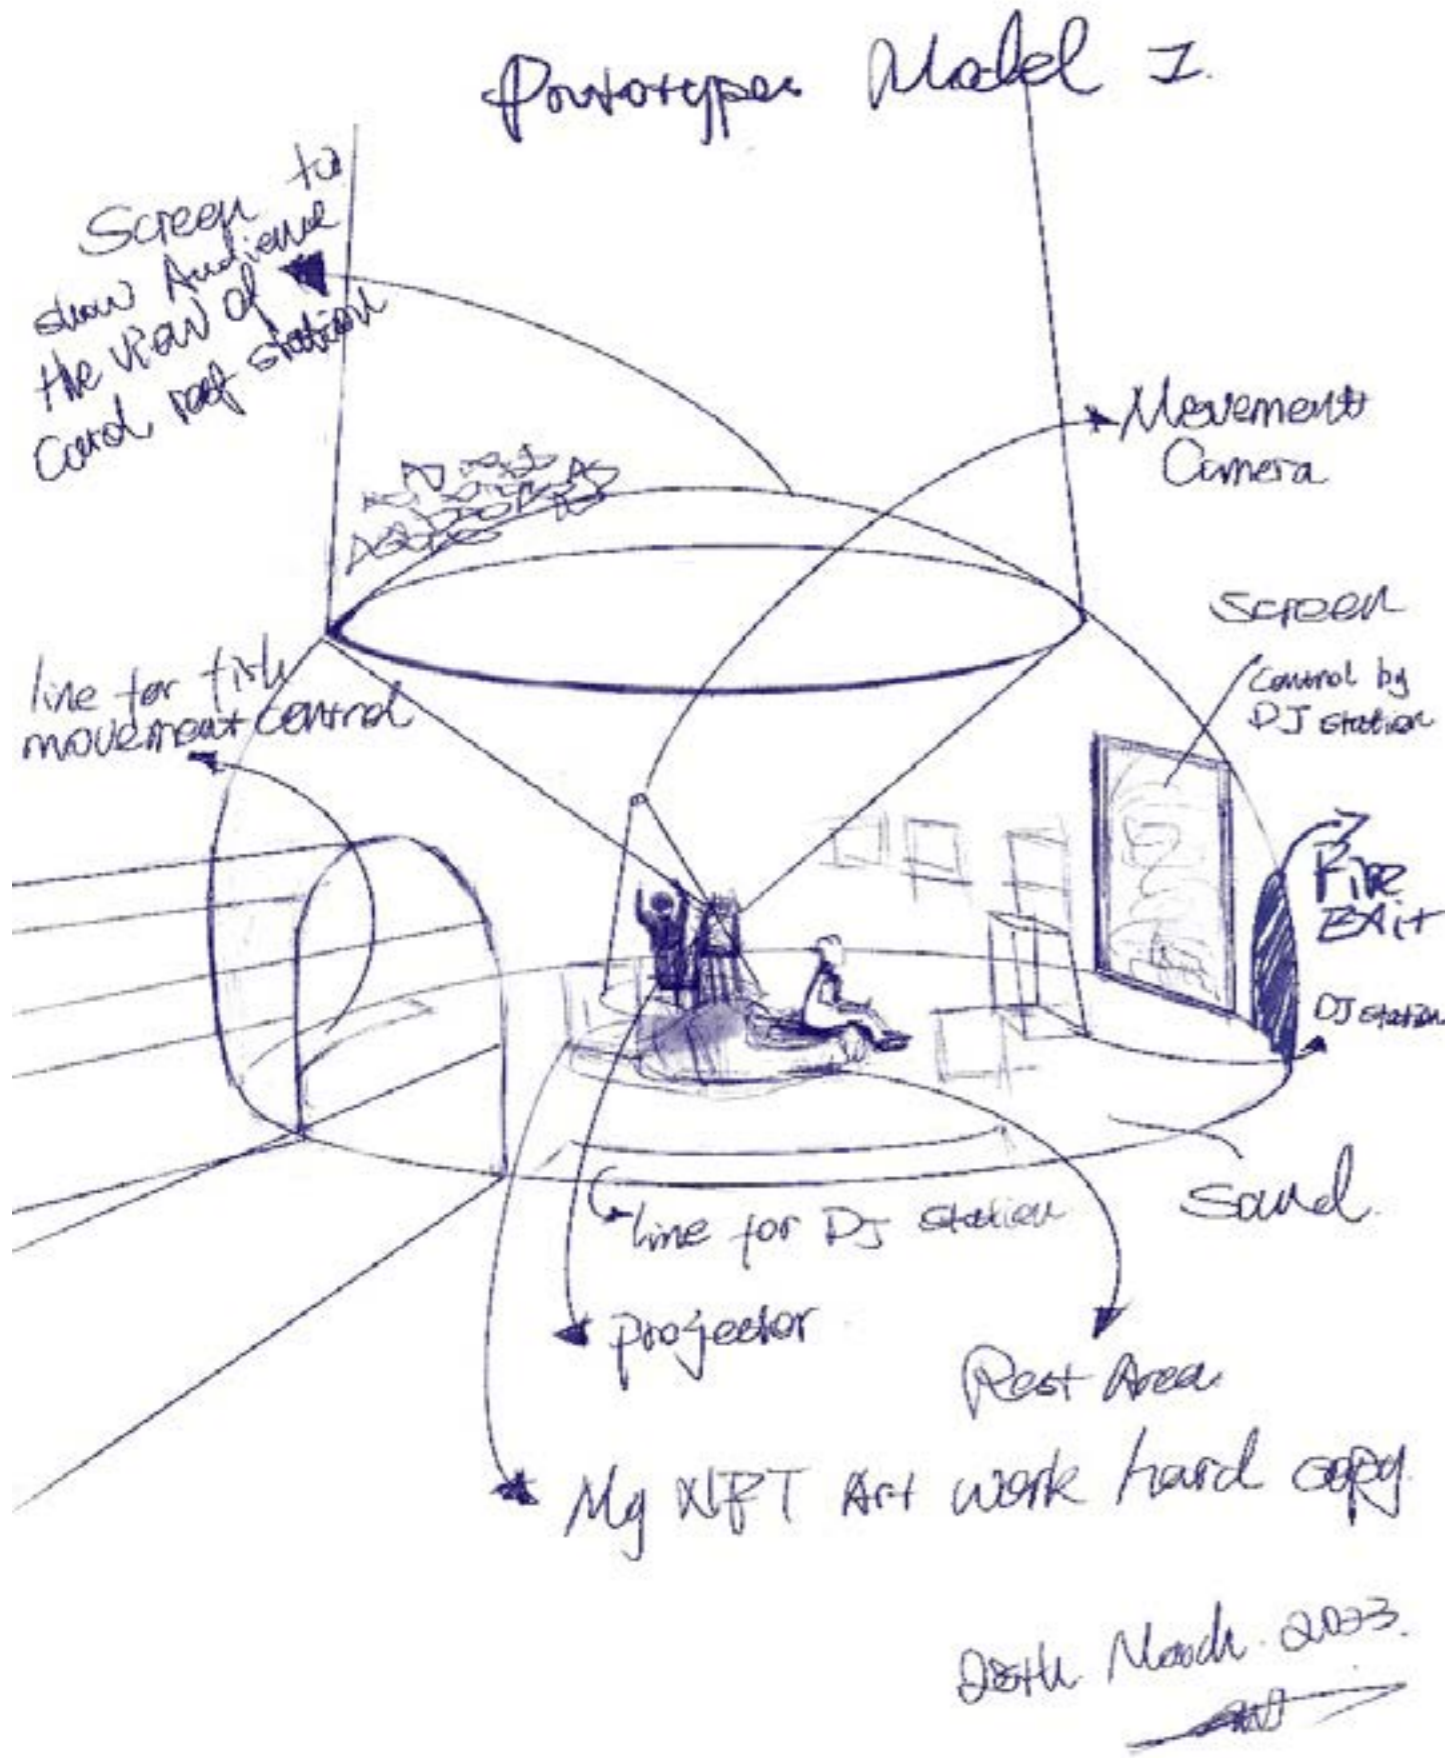 Prototypes Model 1.
Screen to
show Audience
the view of
Coral reef station
Movement
Camera
Screen
Control by
DJ station
line for fish
movement control
Fire
Exit
DJ station
Sound.
line for DJ station
Projector
Rest Area.
My NFT Art work hard copy.
28th March. 2023.